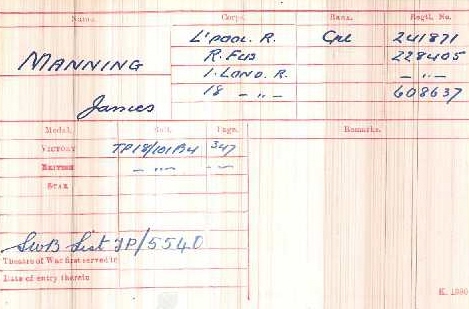 Name. Corps. Rank. Regtl. No.
MANNING L'pool R. Cpl 241871
R. Fus 228405
1. Lond. R. — " —
James 18 — " — 608637
Medal. Roll. Page. Remarks.
Victory TP18/101B4 347
British — " — — " —
Star
SWB List TP/5540
Theatre of War first served in
Date of entry therein
K. 1380